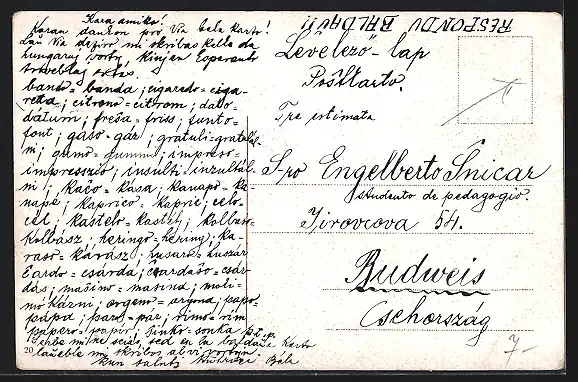 Kara amiko!
Karan dankon por Via bela karto!
Laŭ Via deziro mi skribas kelke da
hungaraj vortoj, kiuj en Esperanto
troveblaj estas.
bando = banda; cigaredo = ciga-
retta; citrono = citrom; dato =
dátum; freŝa = friss; funto =
font; gaso = gáz; gratuli = gratulál-
ni; gumo = gummi; impreso =
impresszió; insulti = inzultál-
ni; kaĉo = kása; kanapo = ka-
napé; kaprico = kapric; celo =
cél; kastelo = kastély; kolbaso =
kolbász; heringo = hering; ka-
raso = kárász; husaro = huszár
ĉardo = csárda; ĉardaŝo = csár-
dás; maŝino = masina; moli-
mo Kárni; orgeno = orgona; papo =
pápa; paro = pár; rimo = rim
papero = papir; ŝinko = sonka p.t.p.
eble mi ne scias, sed en la
laŭeble mi skribos al vi
kun salutoj Béla
RESPONDU BALDAŬ!!
Levelező-lap
Poŝtkarto.
Tre estimata
S-ro Engelberto Ŝnicar
studento de pedagogio.
Jirovcova 54.
Budweis
Csehország
20
7-